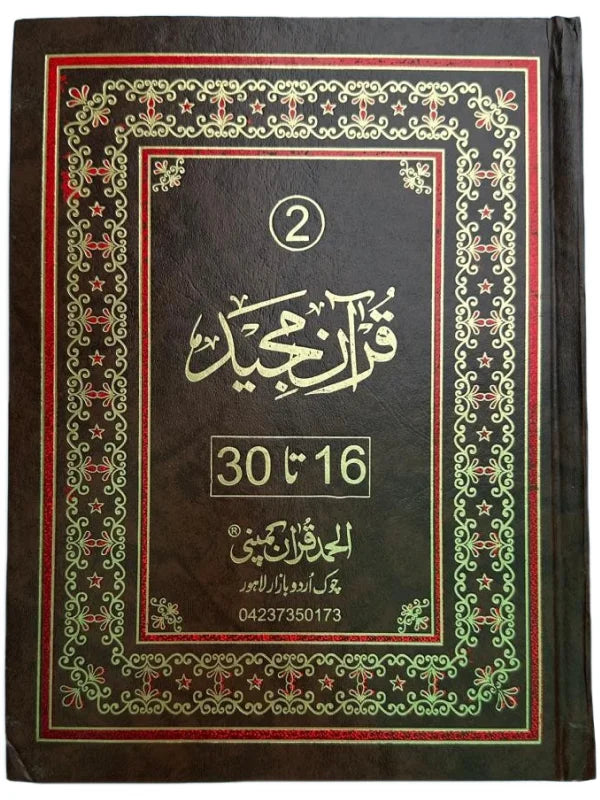 2
قرآن مجید
16 تا 30
الحمد قرآن کمپنی ®
چوک اُردو بازار لاہور
04237350173